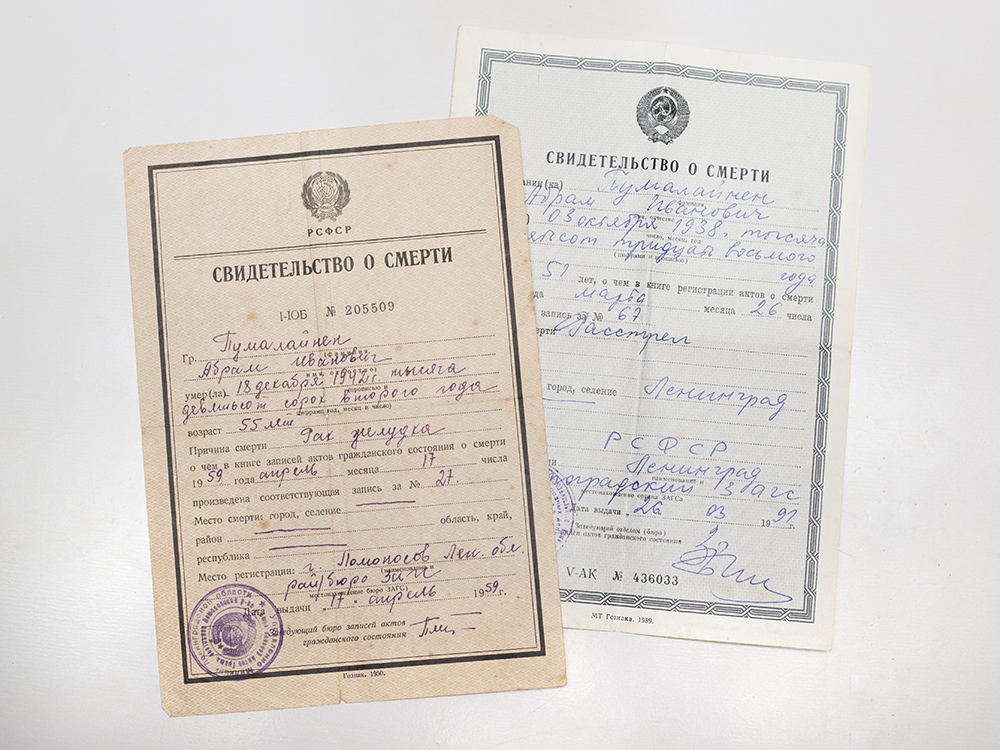 РСФСР
СВИДЕТЕЛЬСТВО О СМЕРТИ
I-ЮБ № 205509
Гр. Пумалайнен
(фамилия,
Абрам Иванович
имя, отчество)
умер(ла) 18 декабря 1942 г. тысяча
(прописью и
девятьсот сорок второго года
цифрами год, месяц и число)
возраст 55 лет
Причина смерти Рак желудка
о чем в книге записей актов гражданского состояния о смерти
1959 года апрель месяца 17 числа
произведена соответствующая запись за № 27.
Место смерти: город, селение
район область, край,
республика
Место регистрации: г. Ломоносов Лен. обл.
(наименование и
рай/бюро ЗАГС
местонахождение бюро ЗАГС)
Дата выдачи „17" апрель 1959 г.
Заведующий бюро записей актов
гражданского состояния
Гознак. 1950.
СВИДЕТЕЛЬСТВО О СМЕРТИ
анин(ка) Пумалайнен
фамилия,
Абрам Иванович
имя, отчество
) 03 октября 1938, тысяча
число, месяц, год
девятьсот тридцать восьмого
(цифрами и прописью)
года
51 лет, о чем в книге регистрации актов о смерти
года марта месяца 26 числа
запись за № 67
смерти Расстрел
город, селение Ленинград
РСФСР
Ленинград
наименование и
ЗАГС
местонахождение органа ЗАГСа
Дата выдачи „26" 03 1991 г.
Заведующий отделом (бюро)
записей актов гражданского состояния
V-АК № 436033
МТ Гознака. 1989.